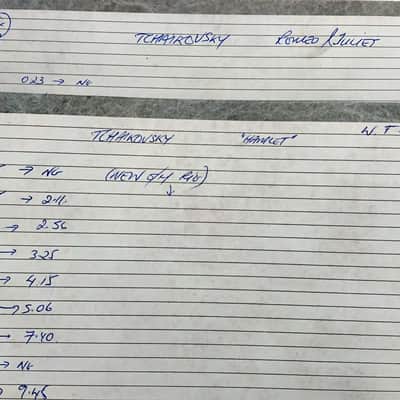 TCHAIKOVSKY ROMEO & JULIET
023 → NG
TCHAIKOVSKY "HAMLET" W.T
→ NG (NEW 6/4 REG)
→ 2.11. ↓
→ 2.56
→ 3.25
→ 4.15
→ 5.06
→ 7.40.
→ NG
→ 9.45